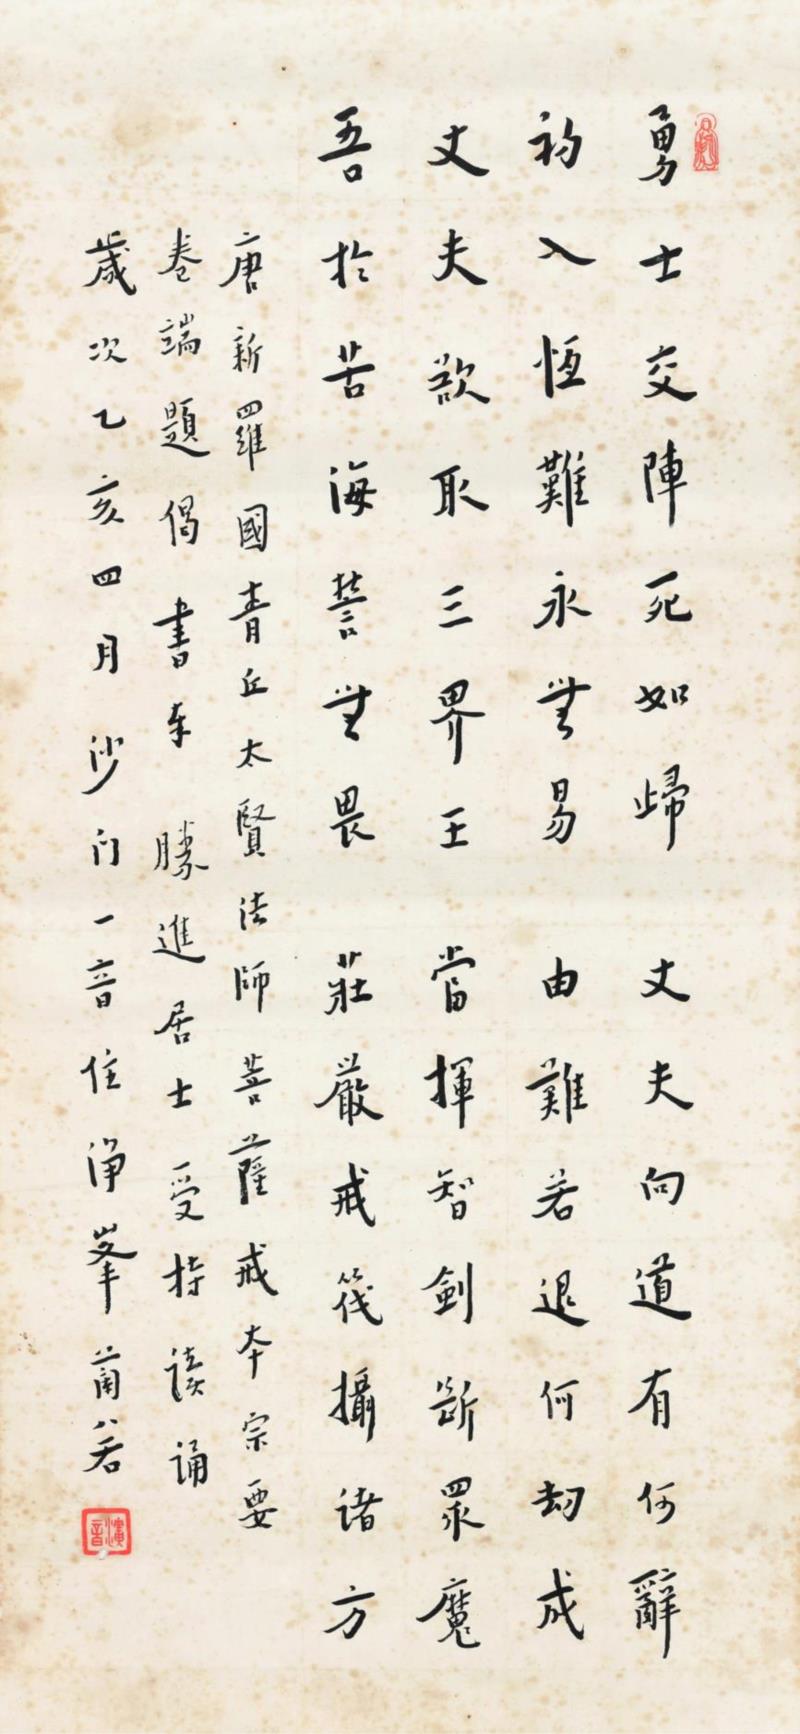 勇士交陣死如歸 丈夫向道有何辭
初入恆難永無易 由難若退何劫成
丈夫欲取三界王 當揮智劍斷眾魔
吾於苦海誓無畏 莊嚴戒筏攝諸方
唐新羅國青丘太賢法師菩薩戒本宗要
卷端題偈書奉 勝進居士受持讀誦
歲次乙亥四月沙門一音住淨峯蘭若
演音